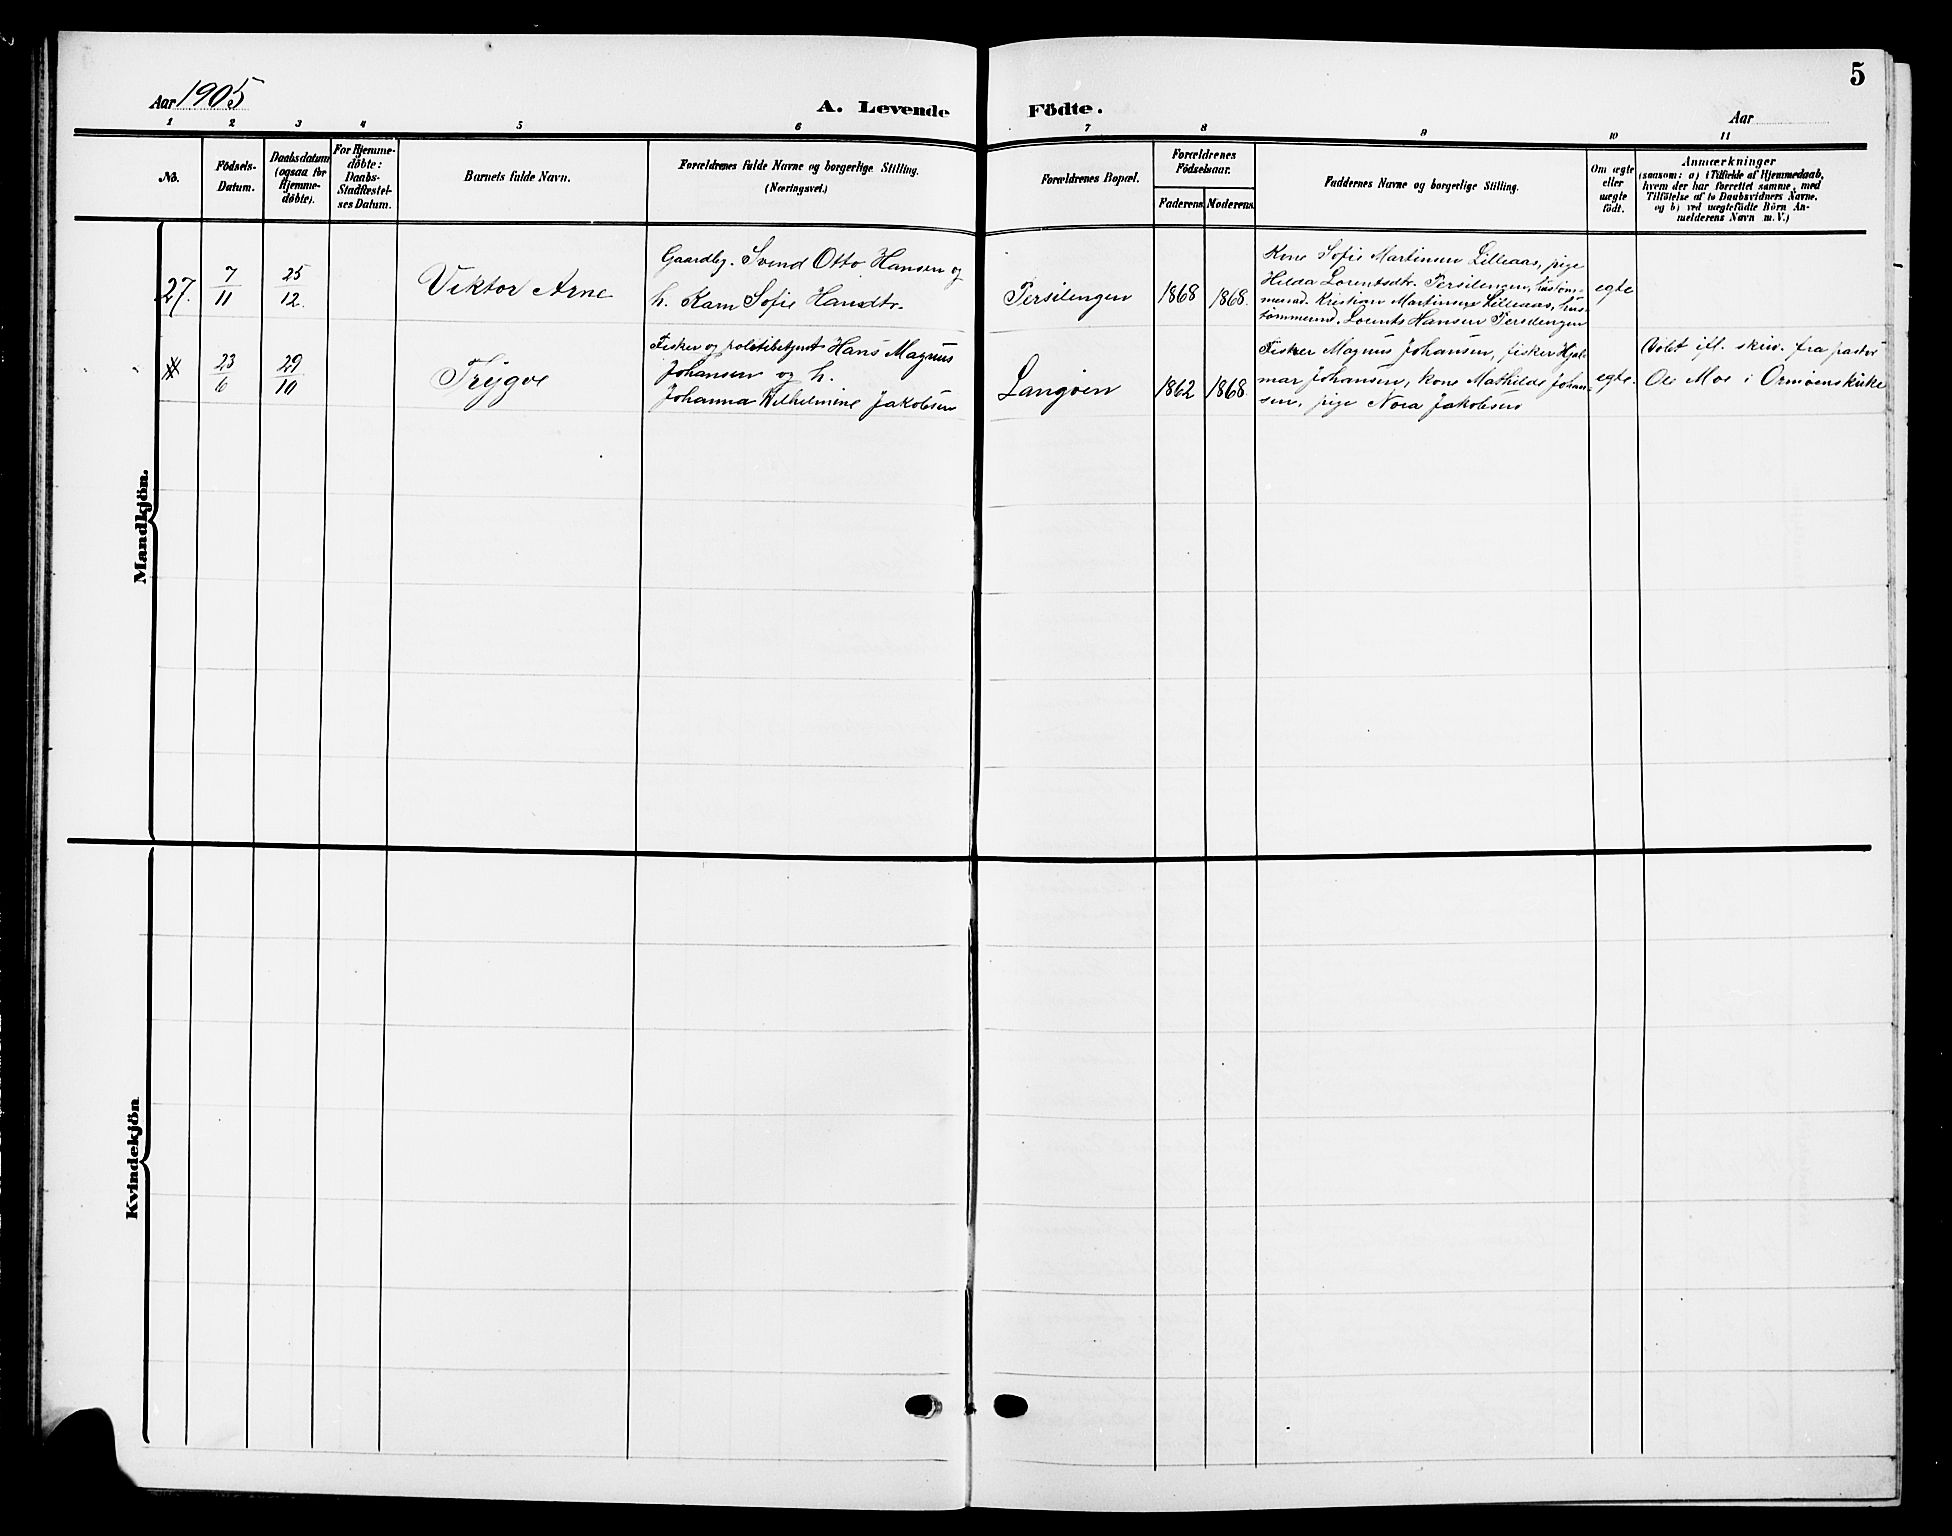 5
Aar 1905
A. Levende Födte.
Aar
1 2 3 4 5 6 7 8 9 10 11
No.
Födsels-
Datum.
Daabsdatum
(ogsaa for
Hjemme-
døbte).
For Hjemme-
døbte:
Daabs-
Stadfæstel-
ses Datum.
Barnets fulde Navn.
Forældrenes fulde Navne og borgerlige Stilling.
(Næringsvei.)
Forældrenes Bopæl.
Forældrenes
Födselsaar.
Faderens Moderens.
Faddernes Navne og borgerlige Stilling.
Om ægte
eller
uægte
født.
Anmærkninger
(saasom: a) i Tilfælde af Hjemmedaab,
hvem der har forrettet samme, med
Tilföielse af to Daabsvidners Navne,
og b) ved uægtefödte Börn An-
melderens Navn m. V.)
Mandkjön.
27. 7/11 25/12
Viktor Arne
Gaardbg. Svend Otto Hansen og
h. Karn Sofie Hansdtr.
Persilengen
1868 1868.
Kone Sofie Martinsen Lilleaas, pige
Hilda Lorentsdtr. Persilengen, tustøm-
mermd. Kristian Martinsen Lilleaas,
tømmermd. Lorents Hansen Persilengen
egte
23/6 29/10
Trygve
Fisker og politibetjent Hans Magnus
Johansen og h.
Johanna Wilhelmine Jakobsen
Langøen
1862 1868.
Fisker Magnus Johansen, fisker Hjal-
mar Johansen, kone Mathilde Johan-
sen, pige Nora Jakobsen
egte.
Døbt ifl. skriv. fra pastor
Ole Moe i Ormøens kirke
Kvindekjön